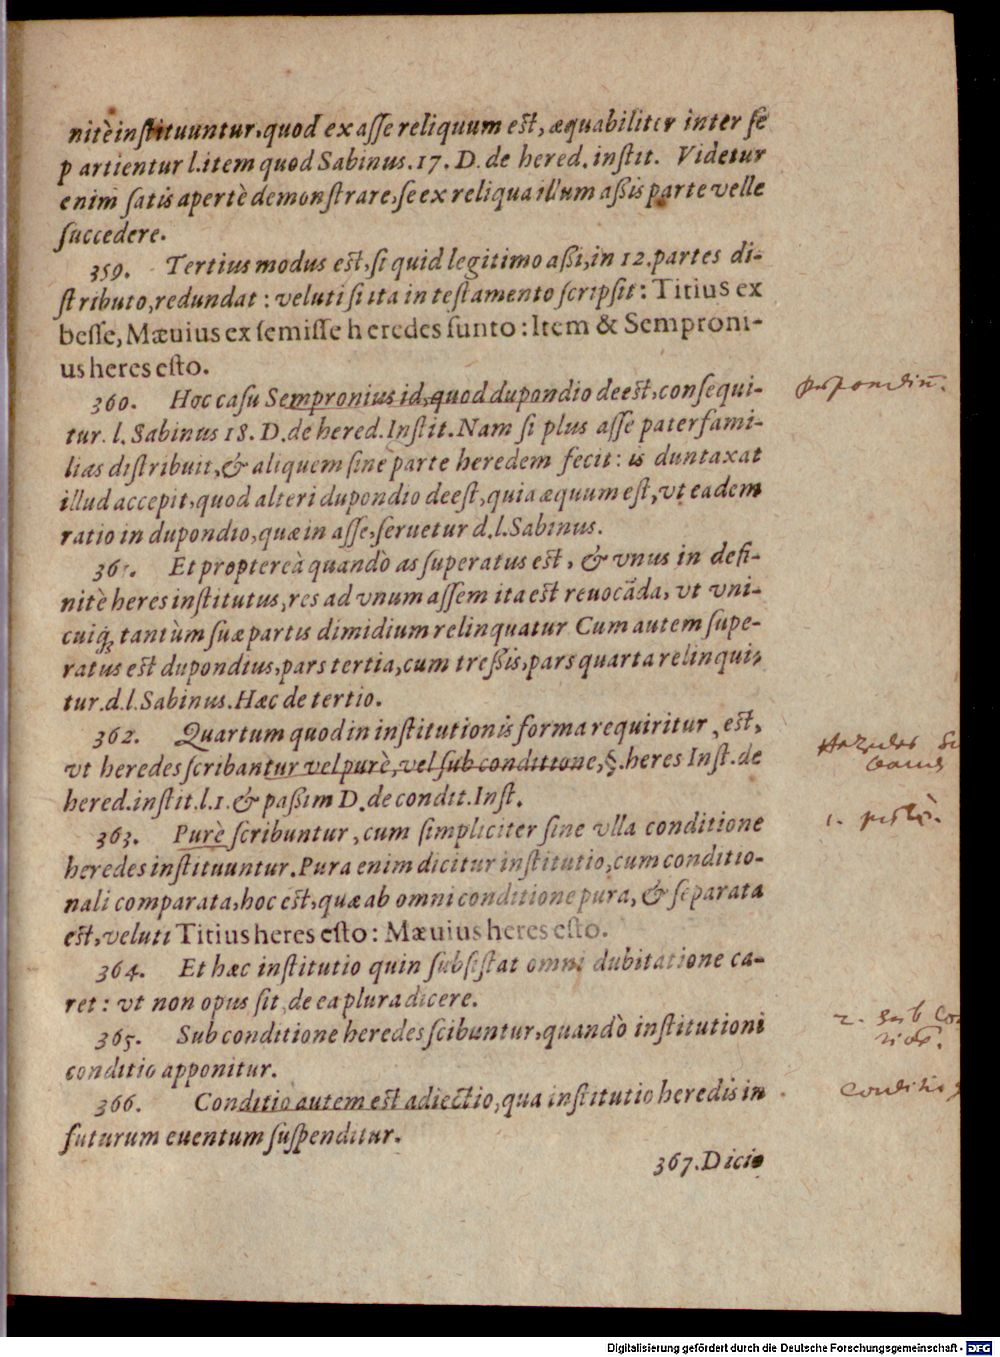 nitè instituuntur, quod ex asse reliquum est, æquabiliter inter se
partientur l. item quod Sabinus. 17. D. de hered. instit. Videtur
enim satis apertè demonstrare, se ex reliqua illum aßis parte velle
succedere.
359. Tertius modus est, si quid legitimo aßi, in 12. partes di-
stributo, redundat: veluti si ita in testamento scripsit: Titius ex
besse, Mævius ex semisse heredes sunto: Item & Semproni-
us heres esto.
360. Hoc casu Sempronius id, quod dupondio deest, consequi-
tur. l. Sabinus 18. D. de hered. Instit. Nam si plus asse paterfami-
lias distribuit, & aliquem sine parte heredem fecit: is duntaxat
illud accepit, quod alteri dupondio deest, quia æquum est, vt eadem
ratio in dupondio, quæ in asse, seruetur d. l. Sabinus.
361. Et proptereà quandò as superatus est, & vnus in defi-
nitè heres institutus, res ad vnum assem ita est reuocãda, vt vni-
cuiq; tantùm suæ partis dimidium relinquatur Cum autem supe-
ratus est dupondius, pars tertia, cum treßis, pars quarta relinqui-
tur. d. l. Sabinus. Hæc de tertio.
362. Quartum quod in institutionis forma requiritur, est,
vt heredes scribantur vel purè, vel sub conditione, §. heres Inst. de
hered. instit. l. 1. & paßim D. de condit. Inst.
363. Purè scribuntur, cum simpliciter sine vlla conditione
heredes instituuntur. Pura enim dicitur institutio, cum conditio-
nali comparata, hoc est, quæ ab omni conditione pura, & separata
est, veluti Titius heres esto: Mæuius heres esto.
364. Et hæc institutio quin subsistat omni dubitatione ca-
ret: vt non opus sit, de ea plura dicere.
365. Sub conditione heredes scibuntur, quandò institutioni
conditio apponitur.
366. Conditio autem est adiectio, qua institutio heredis in
futurum euentum suspenditur.
367. Dici
1.
2. sub
Conditio
Digitalisierung gefördert durch die Deutsche Forschungsgemeinschaft - DFG